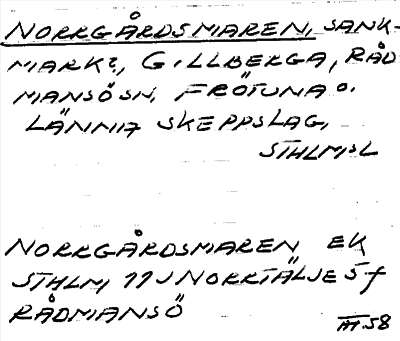 NORRGÅRDSMAREN, SANK-
MARK?, GILLBERGA, RÅD
MANSÖSN, FRÖTUNA o.
LÄNNA SKEPPSLAG,
STHLMSL
NORRGÅRDSMAREN EK
STHLM 11J NORRTÄLJE 5f
RÅDMANSÖ
III.58